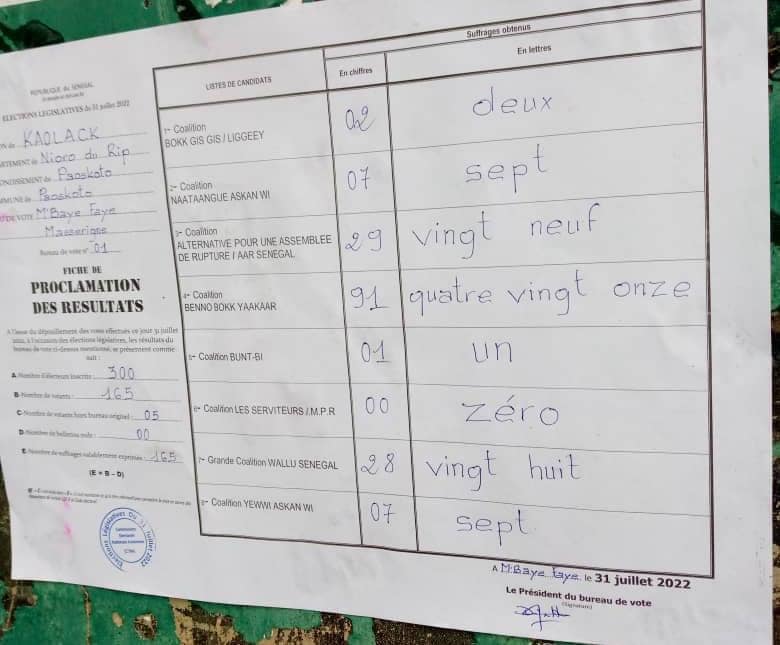 REPUBLIQUE du SENEGAL
ELECTIONS LEGISLATIVES du 31 juillet 2022
KAOLACK
ARTEMENT de Nioro du Rip
ONDISSEMENT de Paoskoto
MMUNE de Paoskoto
DE VOTE M'Baye Faye
Masserigne
Bureau de vote n° 01
FICHE DE
PROCLAMATION
DES RESULTATS
A l'issue du dépouillement des votes effectués ce jour 31 juillet
2022, à l'occasion des élections législatives, les résultats du
bureau de vote ci-dessus mentionné, se présentent comme
suit :
A-Nombre d'électeurs inscrits : 300
B-Nombre de votants : 165
C-Nombre de votants hors bureau originel : 05
D-Nombre de bulletins nuls : 00
E-Nombre de suffrages valablement exprimés : 165
(E = B – D)
Elections Législatives Du 31 Juillet 2022
LISTES DE CANDIDATS
Suffrages obtenus
En chiffres
En lettres
1- Coalition
BOKK GIS GIS / LIGGEEY
02
deux
2- Coalition
NAATAANGUE ASKAN WI
07
sept
3- Coalition
ALTERNATIVE POUR UNE ASSEMBLEE
DE RUPTURE / AAR SENEGAL
29
vingt neuf
4- Coalition
BENNO BOKK YAAKAAR
91
quatre vingt onze
5- Coalition BUNT-BI
01
un
6- Coalition LES SERVITEURS / M.P.R
00
zéro
7- Grande Coalition WALLU SENEGAL
28
vingt huit
8- Coalition YEWWI ASKAN WI
07
sept
A M'Baye Faye le 31 juillet 2022
Le Président du bureau de vote
(Signature)